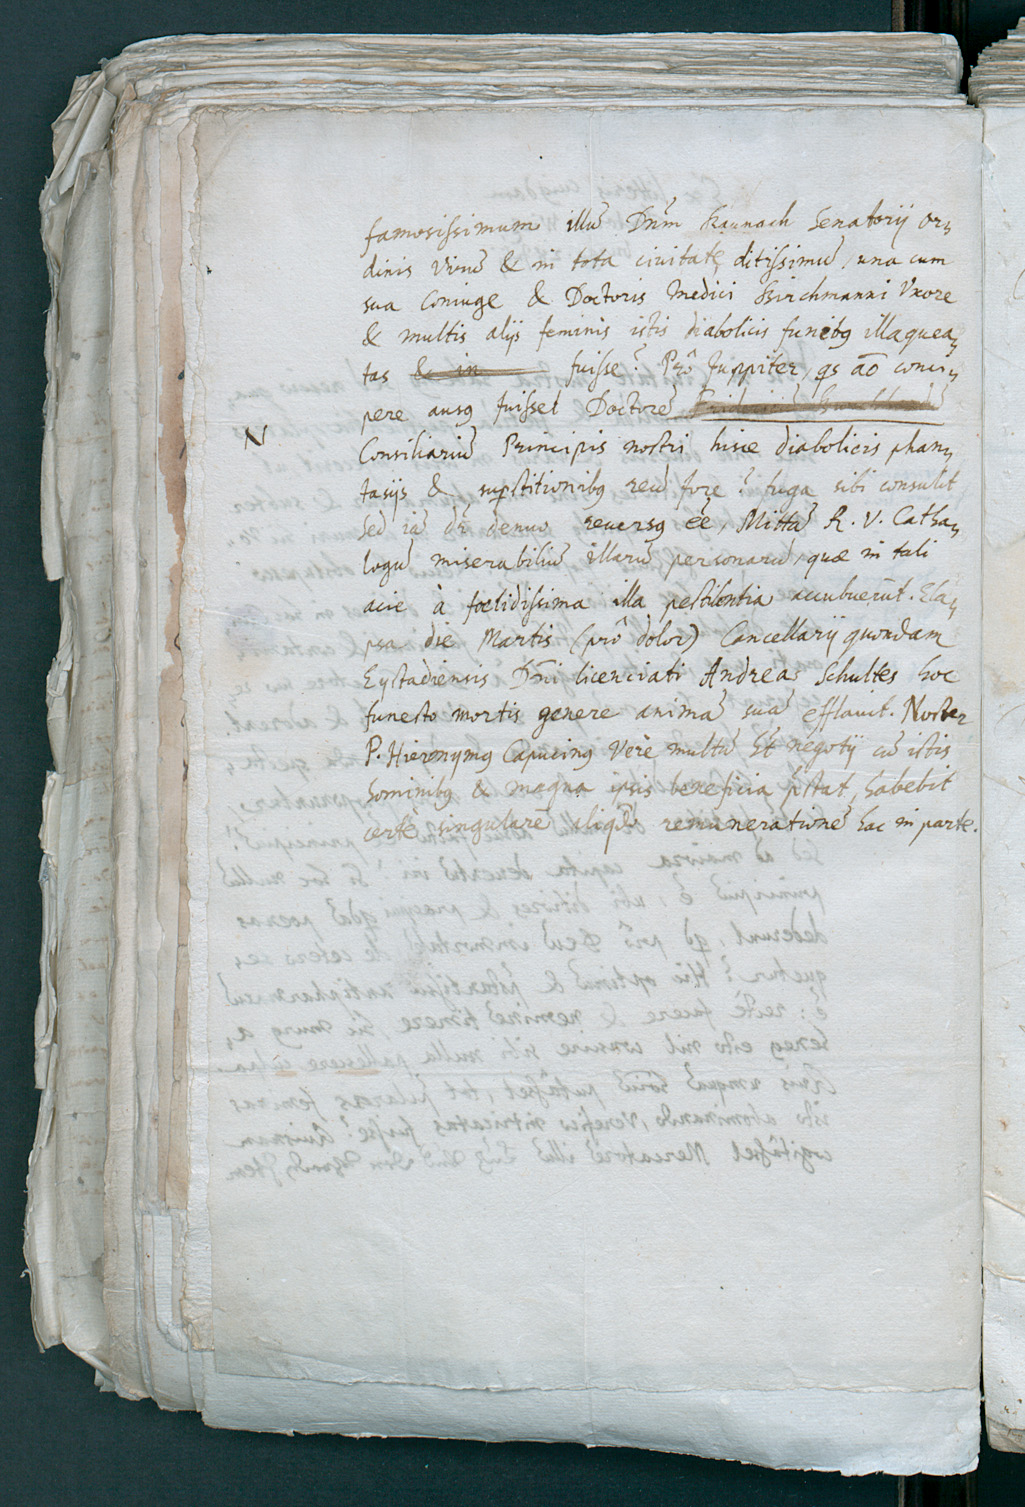 famosissimum illū Dn̄m Kaunach Senatorij or„
dinis virū & in tota ciuitate ditissimū, una cum
sua Coniuge & Doctoris Medici Kirchmanni Vxore
& multis alijs feminis istis diabolicis funibꝰ illaquea„
tas & in fuisse? Prô Juppiter, qs aō conci„
pere ausꝰ fuisset Doctorē
N
Consiliariū Principis nostri hisce diabolicis phan„
tasijs & suꝑstitionibꝰ reū fore? fuga sibi consulit
sed iā dr̄ denuo reuersꝰ eē, Mittā R. V. Catha„
logū miserabiliū illarū personarū, quæ in tali
acie à foetidissima illa pestilentia accubuerūt. Ela„
psa die Martis (prô dolor) Cancellarij quondam
Eystadiensis Dn̄i licenciati Andreas Schultes hoc
funesto mortis genere animā suā efflauit. Noster
P. Hieronymꝰ Capucinꝰ Verè multū h̄t negotij cū istis
hominibꝰ & magna ipsis beneficia p̄stat, habebit
certè singularē aliquā remunerationē hac in parte.